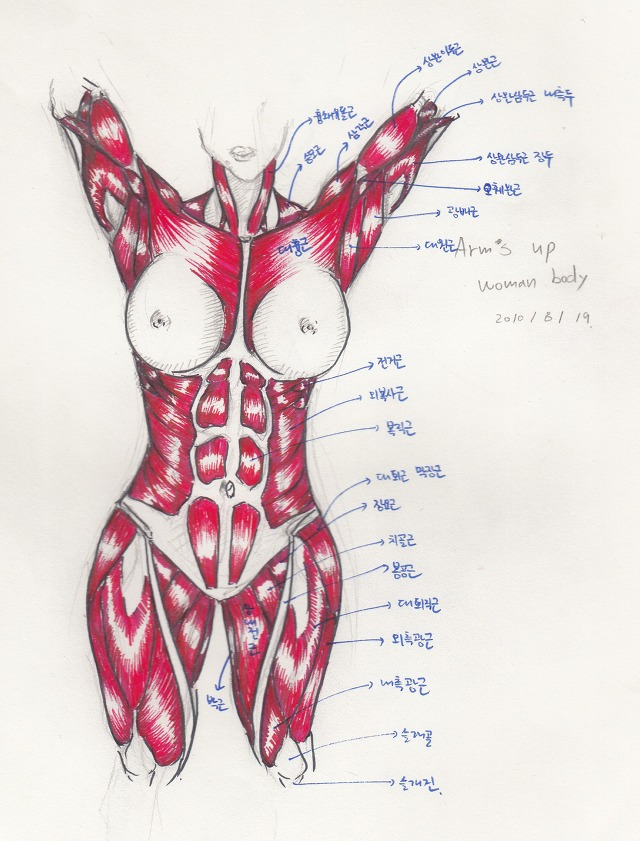 상완이두근
상완근
상완삼두근 내측두
흉쇄유돌근
삼각근
승모근
상완삼두근 장두
오훼완근
광배근
대원근
대흉근
Arm's up
woman body
2010 / 8 / 19.
전거근
외복사근
복직근
대퇴근 막장근
장요근
치골근
봉공근
대퇴직근
외측광근
박근
내측광근
슬개골
슬개진.